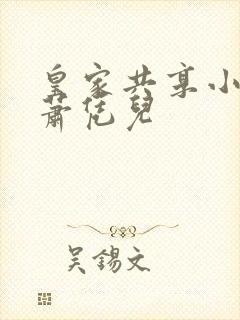 皇家共享小
蕭凭兒
吴錫文